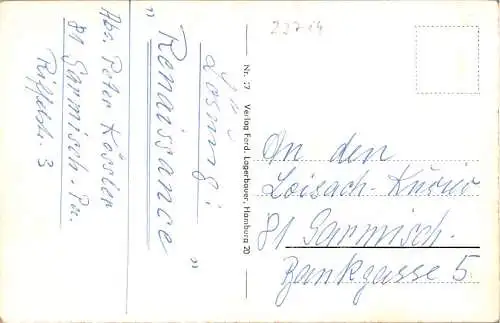 Abs. Peter Kössler
81 Garmisch-Pa.
Riffelstr. 3
Lösung:
"Renaissance"
Nr. 17 Verlag Ferd. Lagerbauer, Hamburg 20
An den
Loisach-Kurier
81 Garmisch-
Bankgasse 5